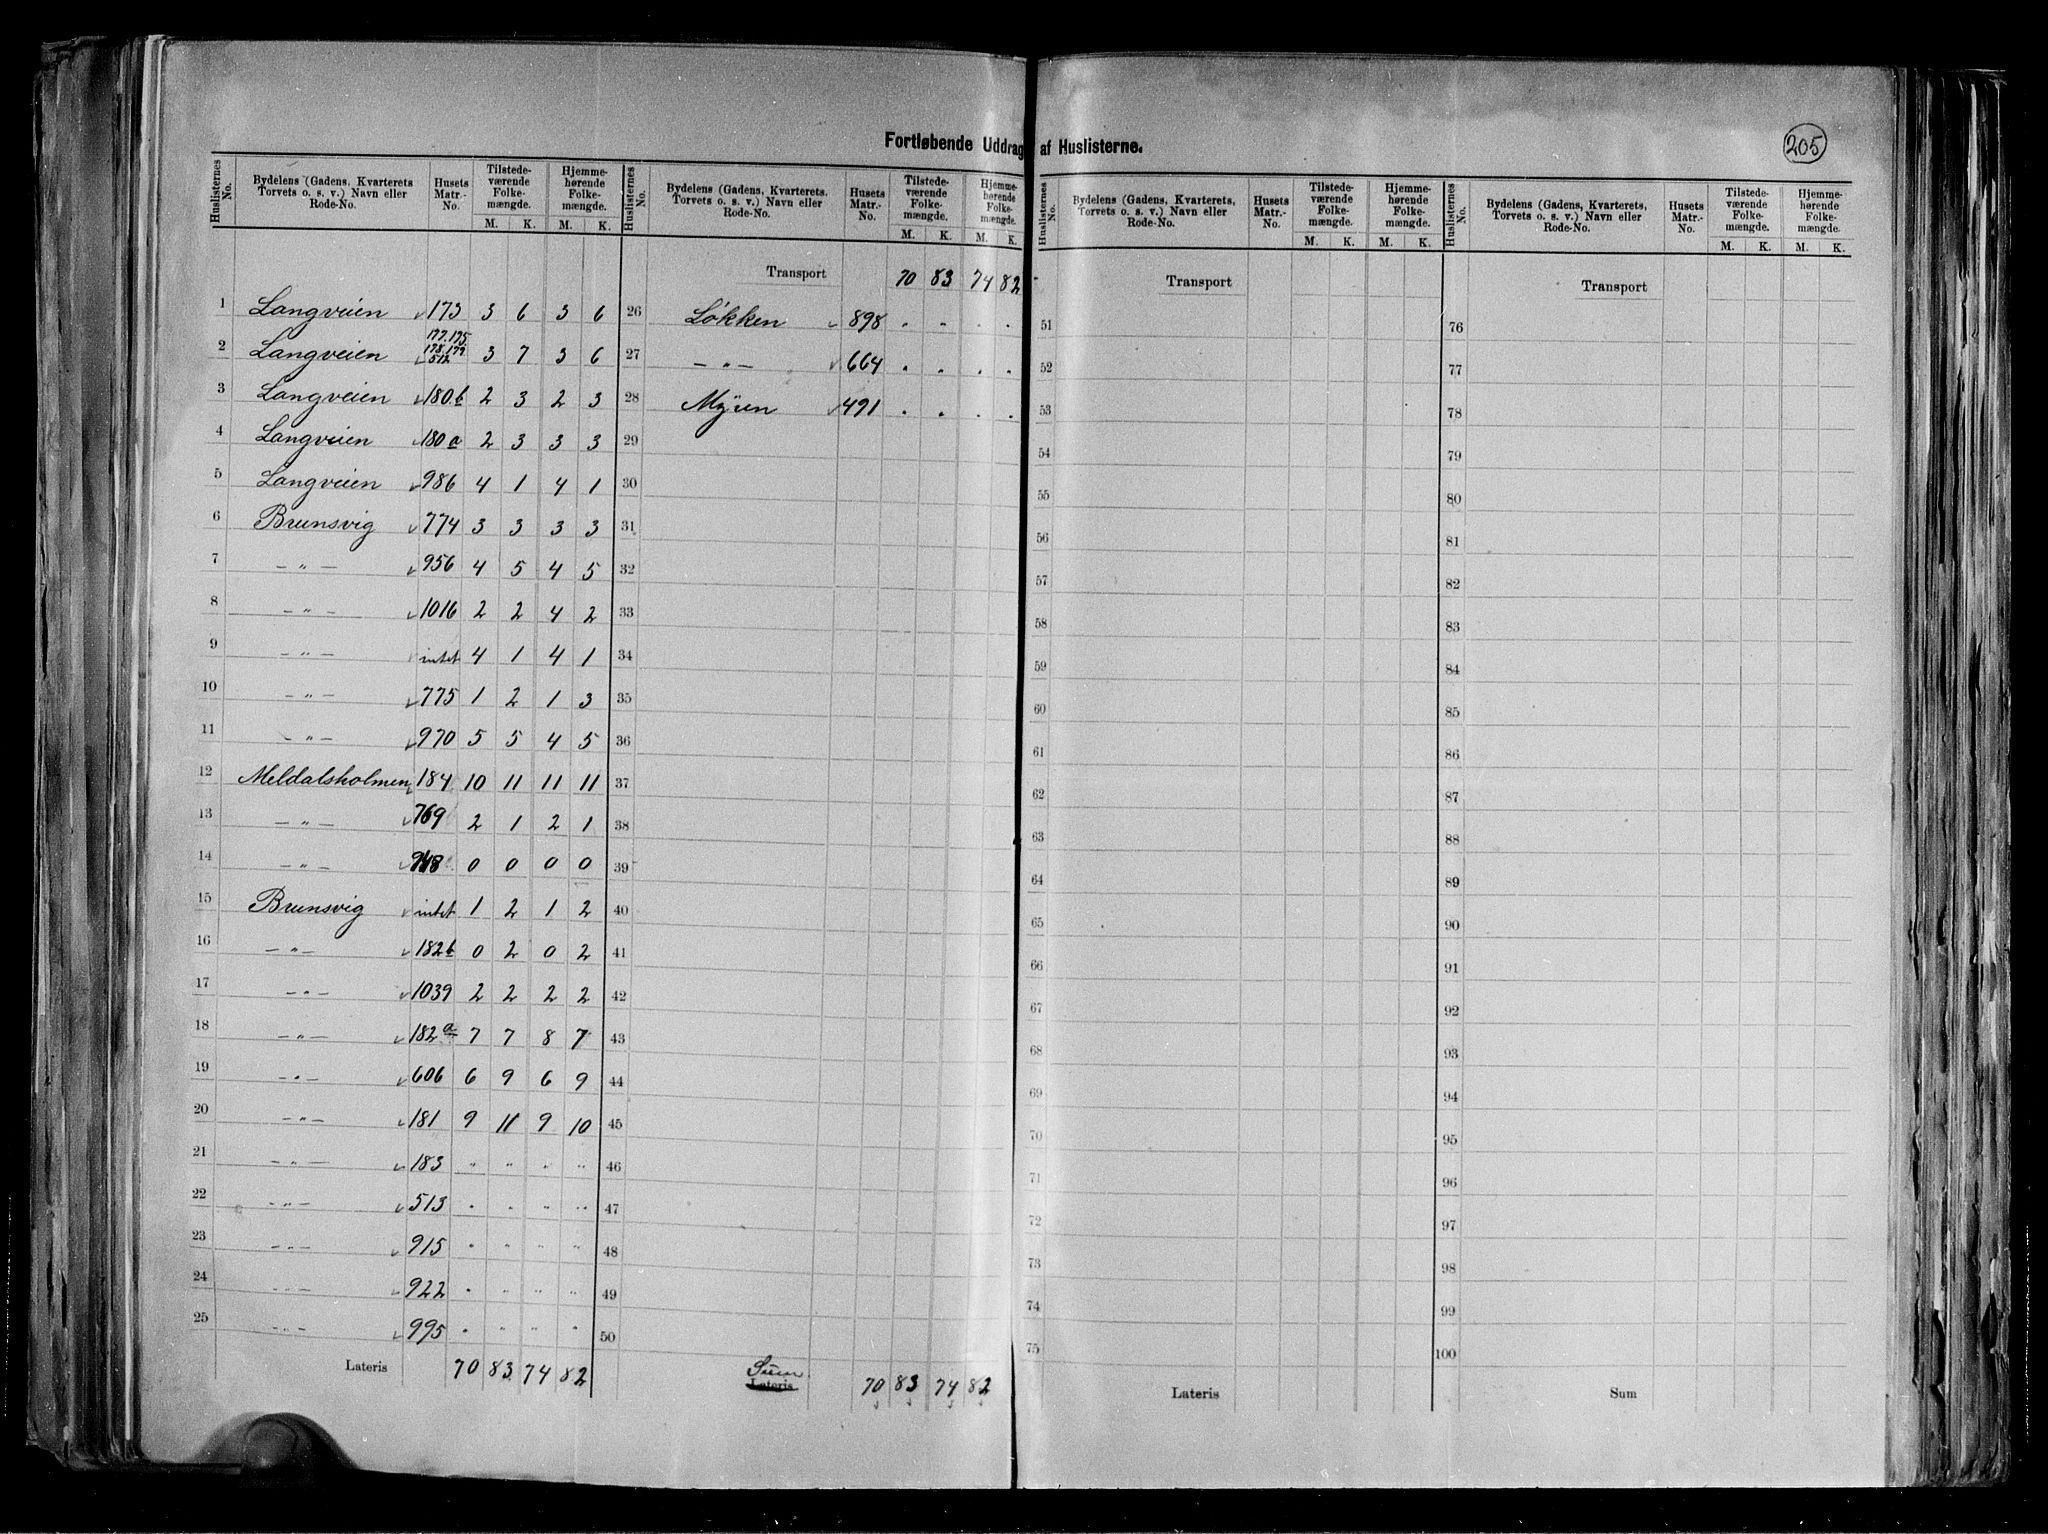 Fortløbende Uddrag af Huslisterne.
205
Huslisternes No. | Bydelens (Gadens, Kvarterets Torvets o. s. v.) Navn eller Rode-No. | Husets Matr.-No. | Tilstedeværende Folkemængde. M. K. | Hjemmehørende Folkemængde. M. K.
1 Langveien 173 3 6 3 6
2 Langveien 177. 175. 178. 179 512 3 7 3 6
3 Langveien 180b 2 3 2 3
4 Langveien 180a 2 3 3 3
5 Langveien 986 4 1 4 1
6 Brunsvig 774 3 3 3 3
7 — " — 956 4 5 4 5
8 — " — 1016 2 2 4 2
9 — " — intet 4 1 4 1
10 — " — 775 1 2 1 3
11 — " — 970 5 5 4 5
12 Meldalsholmen 184 10 11 11 11
13 — " — 769 2 1 2 1
14 — " — 948 0 0 0 0
15 Brunsvig intet 1 2 1 2
16 — " — 182b 0 2 0 2
17 — " — 1039 2 2 2 2
18 — " — 182a 7 7 8 7
19 — " — 606 6 9 6 9
20 — " — 181 9 11 9 10
21 — " — 183 " " " "
22 — " — 513 " " " "
23 — " — 915 " " " "
24 — " — 922 " " " "
25 — " — 995 " " " "
Lateris 70 83 74 82
Huslisternes No. | Bydelens (Gadens, Kvarterets. Torvets o. s. v.) Navn eller Rode-No. | Husets Matr.-No. | Tilstedeværende Folkemængde. M. K. | Hjemmehørende Folkemængde. M. K.
Transport 70 83 74 82
26 Løkken 898 . . . .
27 — " — 664 . . . .
28 Myren 491 . . . .
29
30
31
32
33
34
35
36
37
38
39
40
41
42
43
44
45
46
47
48
49
50
Sum
Lateris 70 83 74 82
Huslisternes No. | Bydelens (Gadens, Kvarterets, Torvets o. s. v.) Navn eller Rode-No. | Husets Matr.-No. | Tilstedeværende Folkemængde. M. K. | Hjemmehørende Folkemængde. M. K.
Transport
51
52
53
54
55
56
57
58
59
60
61
62
63
64
65
66
67
68
69
70
71
72
73
74
75
Lateris
Huslisternes No. | Bydelens (Gadens, Kvarterets, Torvets o. s. v.) Navn eller Rode-No. | Husets Matr.-No. | Tilstedeværende Folkemængde. M. K. | Hjemmehørende Folkemængde. M. K.
Transport
76
77
78
79
80
81
82
83
84
85
86
87
88
89
90
91
92
93
94
95
96
97
98
99
100
Sum